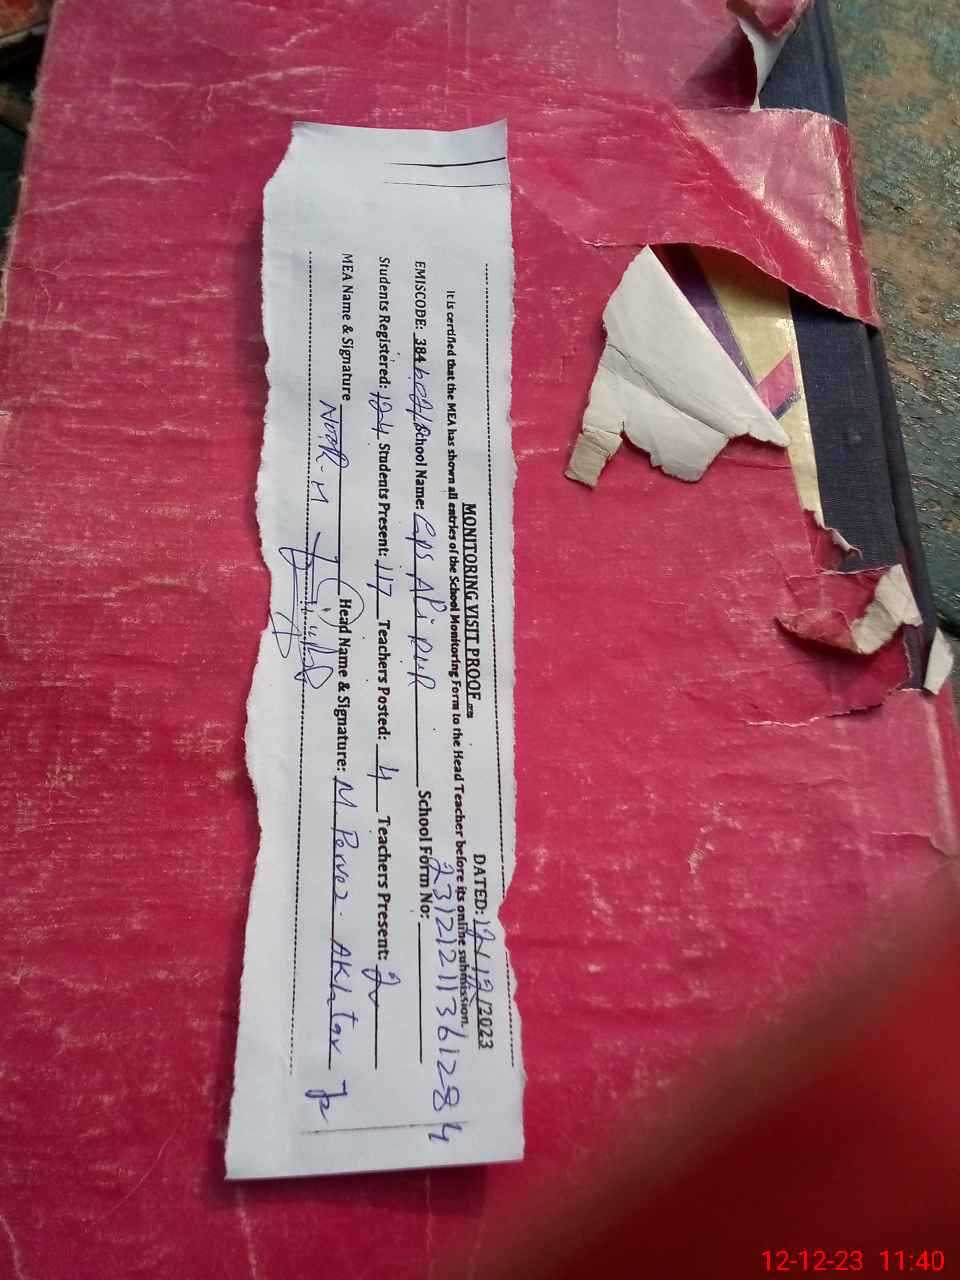 MONITORING VISIT PROOF DATED: 12/12/2023
It is certified that the MEA has shown all entries of the School Monitoring Form to the Head Teacher before its online submission.
23121211361284
EMISCODE: 384 School Name: GPS ALi PUR School Form No:
Students Registered: 124 Students Present: 117 Teachers Posted: 4 Teachers Present: 2
MEA Name & Signature NOOR-M Head Name & Signature: M Pervez. AKhtar
12-12-23 11:40